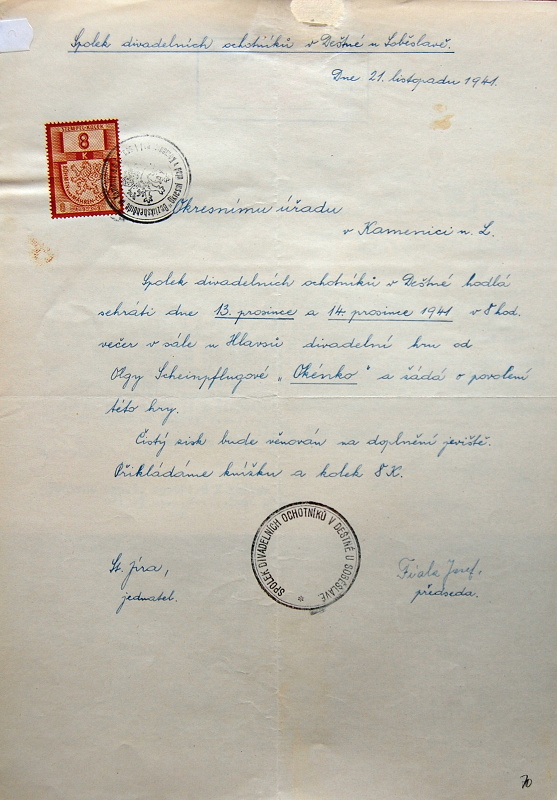 Spolek divadelních ochotníků v Deštné u Soběslavě.
Dne 21. listopadu 1941.
STEMPELMARKE
8
K
BÖHMEN U. MÄHREN
Okresnímu úřadu
v Kamenici n. L.
Spolek divadelních ochotníků v Deštné hodlá
sehráti dne 13. prosince a 14. prosince 1941 v 8 hod.
večer v sále u Hlavsů divadelní hru od
Olgy Scheinpflugové „Okénko" a žádá o povolení
této hry.
Čistý zisk bude věnován na doplnění jeviště.
Přikládáme knížku a kolek 8 K.
SPOLEK DIVADELNÍCH OCHOTNÍKŮ V DEŠTNÉ U SOBĚSLAVĚ
St. Jíra,
jednatel.
Fiala Josef,
předseda.
70